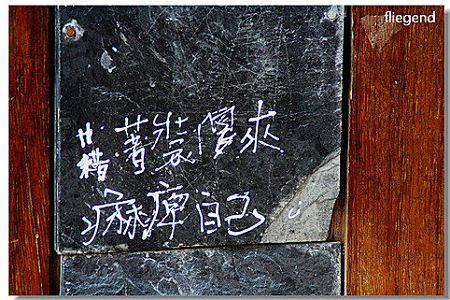 fliegend
藉著裝傻來
痲痺自己